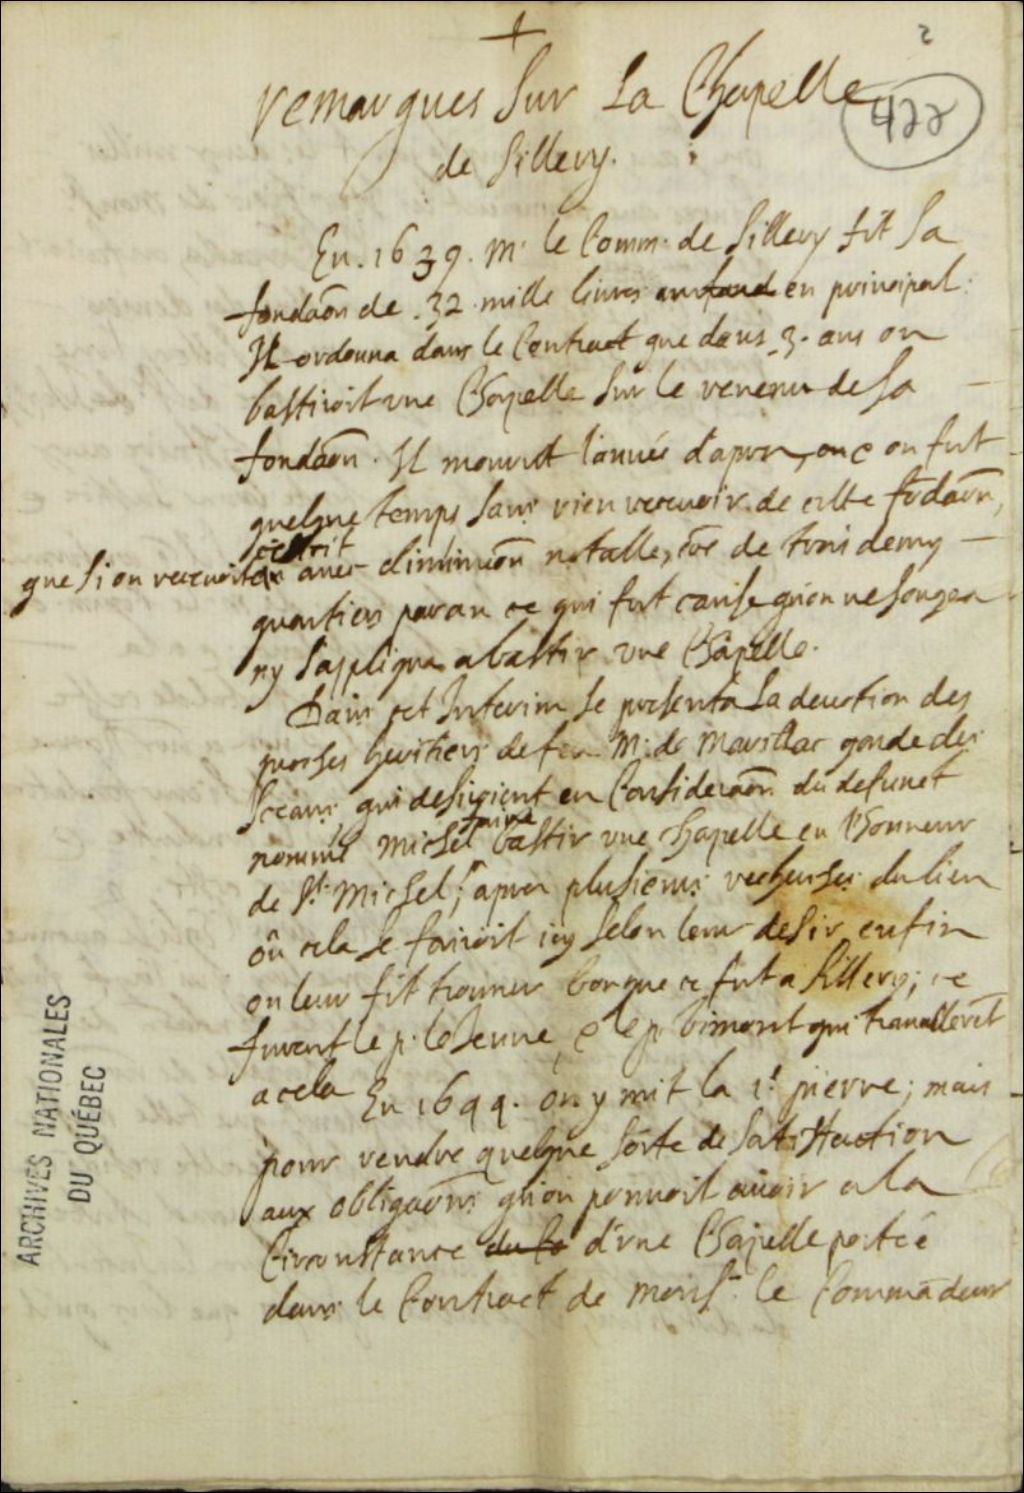 2
+
remarques sur La Chapelle
422
de sillery.
En. 1639. Mr. le Comm. de Sillery fit sa
fondaõn de .32. mille livres en fond en principal.
Il ordonna dans le Contract que dans .3. ans on
bastiroit une Chapelle sur le revenu de sa
fondaõn. Il mourut l'année d'apres, on fut
quelque temps sans rien recevoir de cette fõdaõn,
c'estoit
que si on recevoit avec diminuõn notable, de trois demy
quartiers par an ce qui fut cause qu'on ne songea
ny s'appliqua a bastir une Chapelle.
Dans cet Interim se presenta La devotion des
proches heritiers de feu M. de Marillac garde des
sceaus, qui desiroient en Consideraõn du defunct
faire
nommé Michel bastir une chapelle en l'honneur
de St. Michel; apres plusieurs recherches du lieu
où cela se feroit icy selon leur desir enfin
on leur fit trouver bon que ce fut a Sillery; ce
furent le p. le Jeune, & le p. Vimont qui travallerẽt
a cela En 1644. on y mit la 1e. pierre; mais
pour rendre quelque sorte de satisfaction
aux obligaõns qu'on pouvoit avoir a la
Circonstance du Co d'une Chapelle portée
dans le Contract de Monsr. le Commãdeur
ARCHIVES NATIONALES
DU QUÉBEC